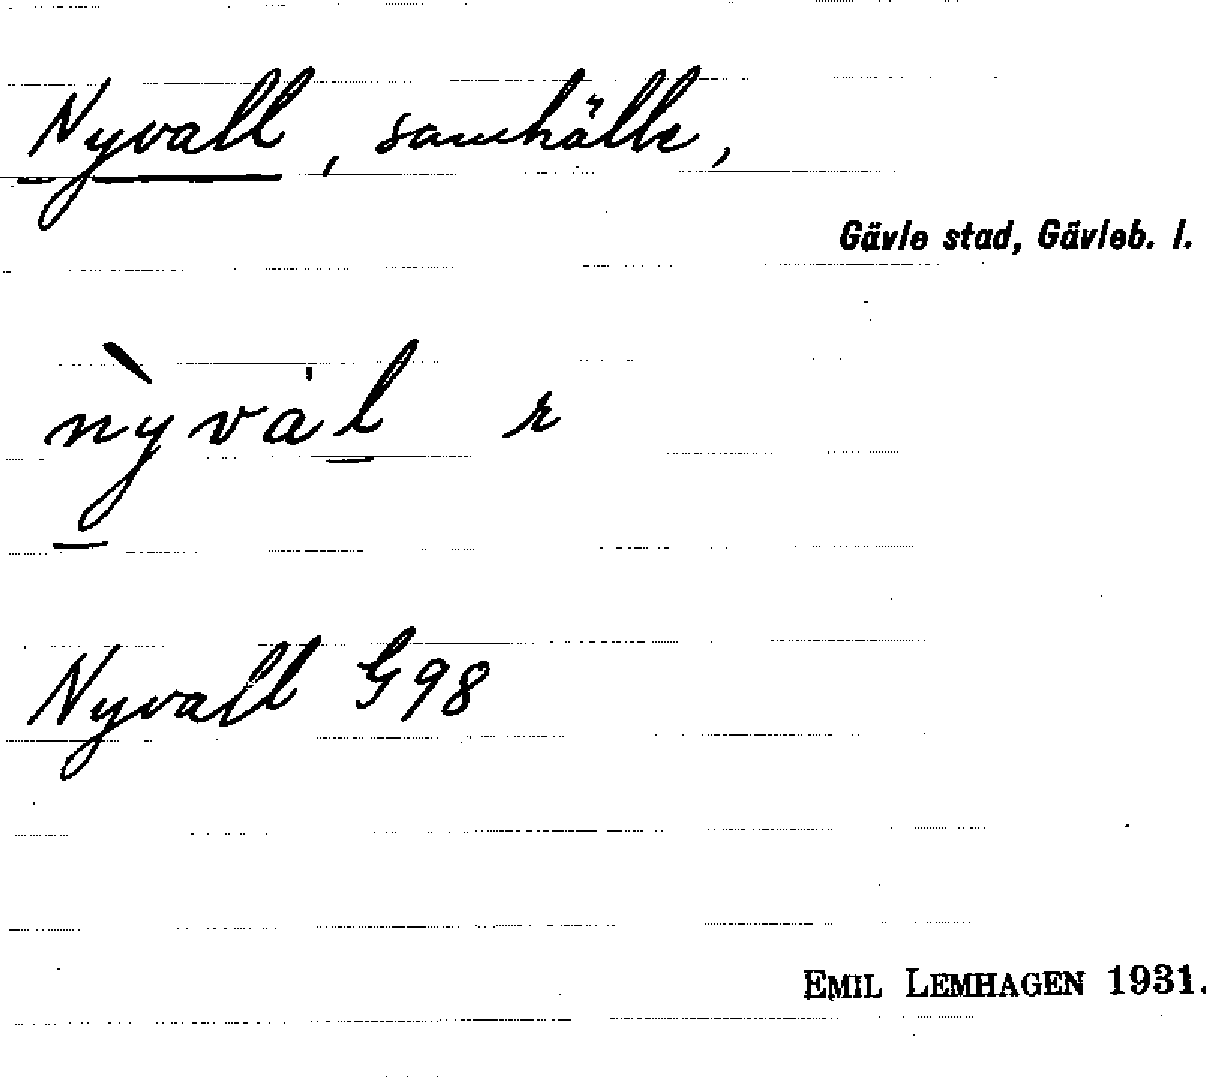 Nyvall, samhälle,
Gävle stad, Gävleb. l.
nỳva̍l r
Nyvall G98
EMIL LEMHAGEN 1931.